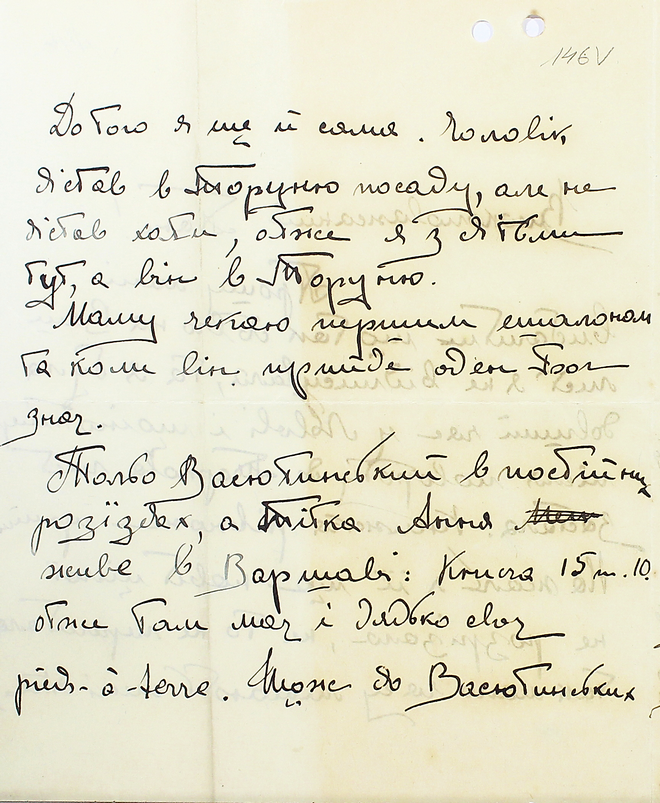 146V
До того я ще й сама. Чоловік
дістав в Торуню посаду, але не
дістав хати, отже я з дітьми
тут, а він в Торуню.
Маму чекаю першим ешалоном
та коли він прийде оден Бог
знає.
Васютинський в постійних
розїздах, а Тітка Анна
живе в Варшаві: Княча 15 m. 10.
отже там має і дядько своє
pied-à-terre. Може до Васютинських